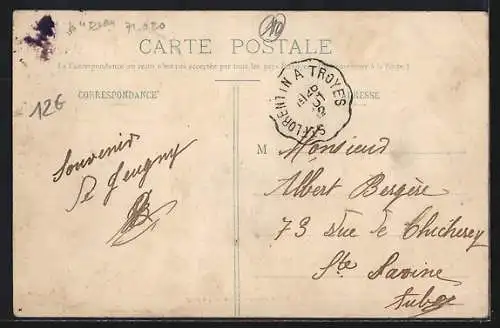 10
CARTE POSTALE
La Correspondance au recto n'est pas acceptée par tous
CORRESPONDANCE
ADRESSE
ST FLORENTIN A TROYES
12€
Souvenir
de Jeugny
M Monsieur
Albert Bergère
73 Rue de Chicherey
Ste Savine
Aube